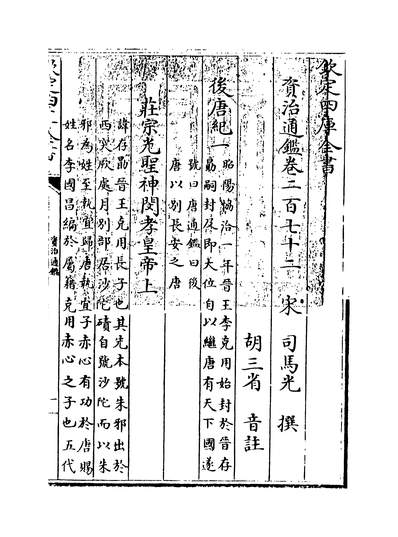 欽定四庫全書
資治通鑑卷二百七十二 宋 司馬光 撰
胡三省 音註
後唐紀一 昭陽協洽一年晉王李克用始封於晉存
勗嗣封尋即大位自以繼唐有天下國遂
號曰唐通鑑曰後
唐以别長安之唐
莊宗光聖神閔孝皇帝上
諱存勗晉王克用長子也其先本號朱邪出於
西突厥處月别部居沙陀磧自號沙陀而以朱
邪為姓至執宜歸唐執宜子赤心有功於唐賜
姓名李國昌編於屬籍克用赤心之子也五代
資治通鑑
一